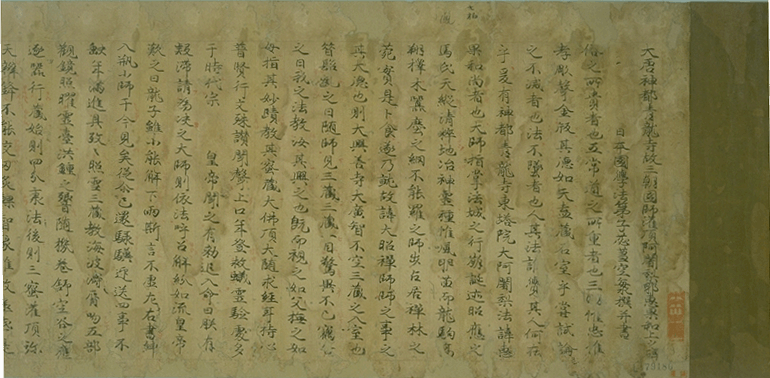 大唐神都青龍寺故三朝國師灌頂阿闍梨惠果和上之碑
日本國學法弟子苾蒭空海撰并書
俗之所貴者也五常道之所重者也三明惟忠惟
孝彫聲金版其德如天盍藏石室乎嘗試論
之不滅者也法不墜者也人其法誰覺其人何在
乎爰有神都青龍寺東塔院大阿闍梨法諱惠
果和尚者也大師拍掌法城之行崩誕迹昭應之
馬氏天縱清粹地冶神靈種惟鳳卵苗而龍駒高
翔擇木囂塵之網不能羅之師步占居禪林之
葩實是卜食遂乃就故諱大照禪師師之事之
其大德也則大興善寺大廣智不空三藏之入室也
昔髫齔之日隨師見三藏三藏一目驚異不已竊告
之曰我之法教汝其興之也既而視之如父撫之如
母指其妙賾教其密藏大佛頂大隨求經耳持心
普賢行文殊讚聞聲止口年登救蟻靈驗處多
于時代宗　皇帝聞之有勅迎入命之曰朕有
疑滯請為決之大師則依法呼召解紛如流皇帝
歎之曰龍子雖小能解下雨斯言不虛左右書紳
入瓶小師于今見矣從爾已還驥騄迎送四事不
缺年滿進具孜孜照雪三藏教海波濤脣吻五部
觀鏡照曜靈臺洪鐘之響隨機卷舒空谷之應
逐器行藏始則四分秉法後則三密灌頂彌
天辯鋒不能交刃炙輠智象誰敢極底